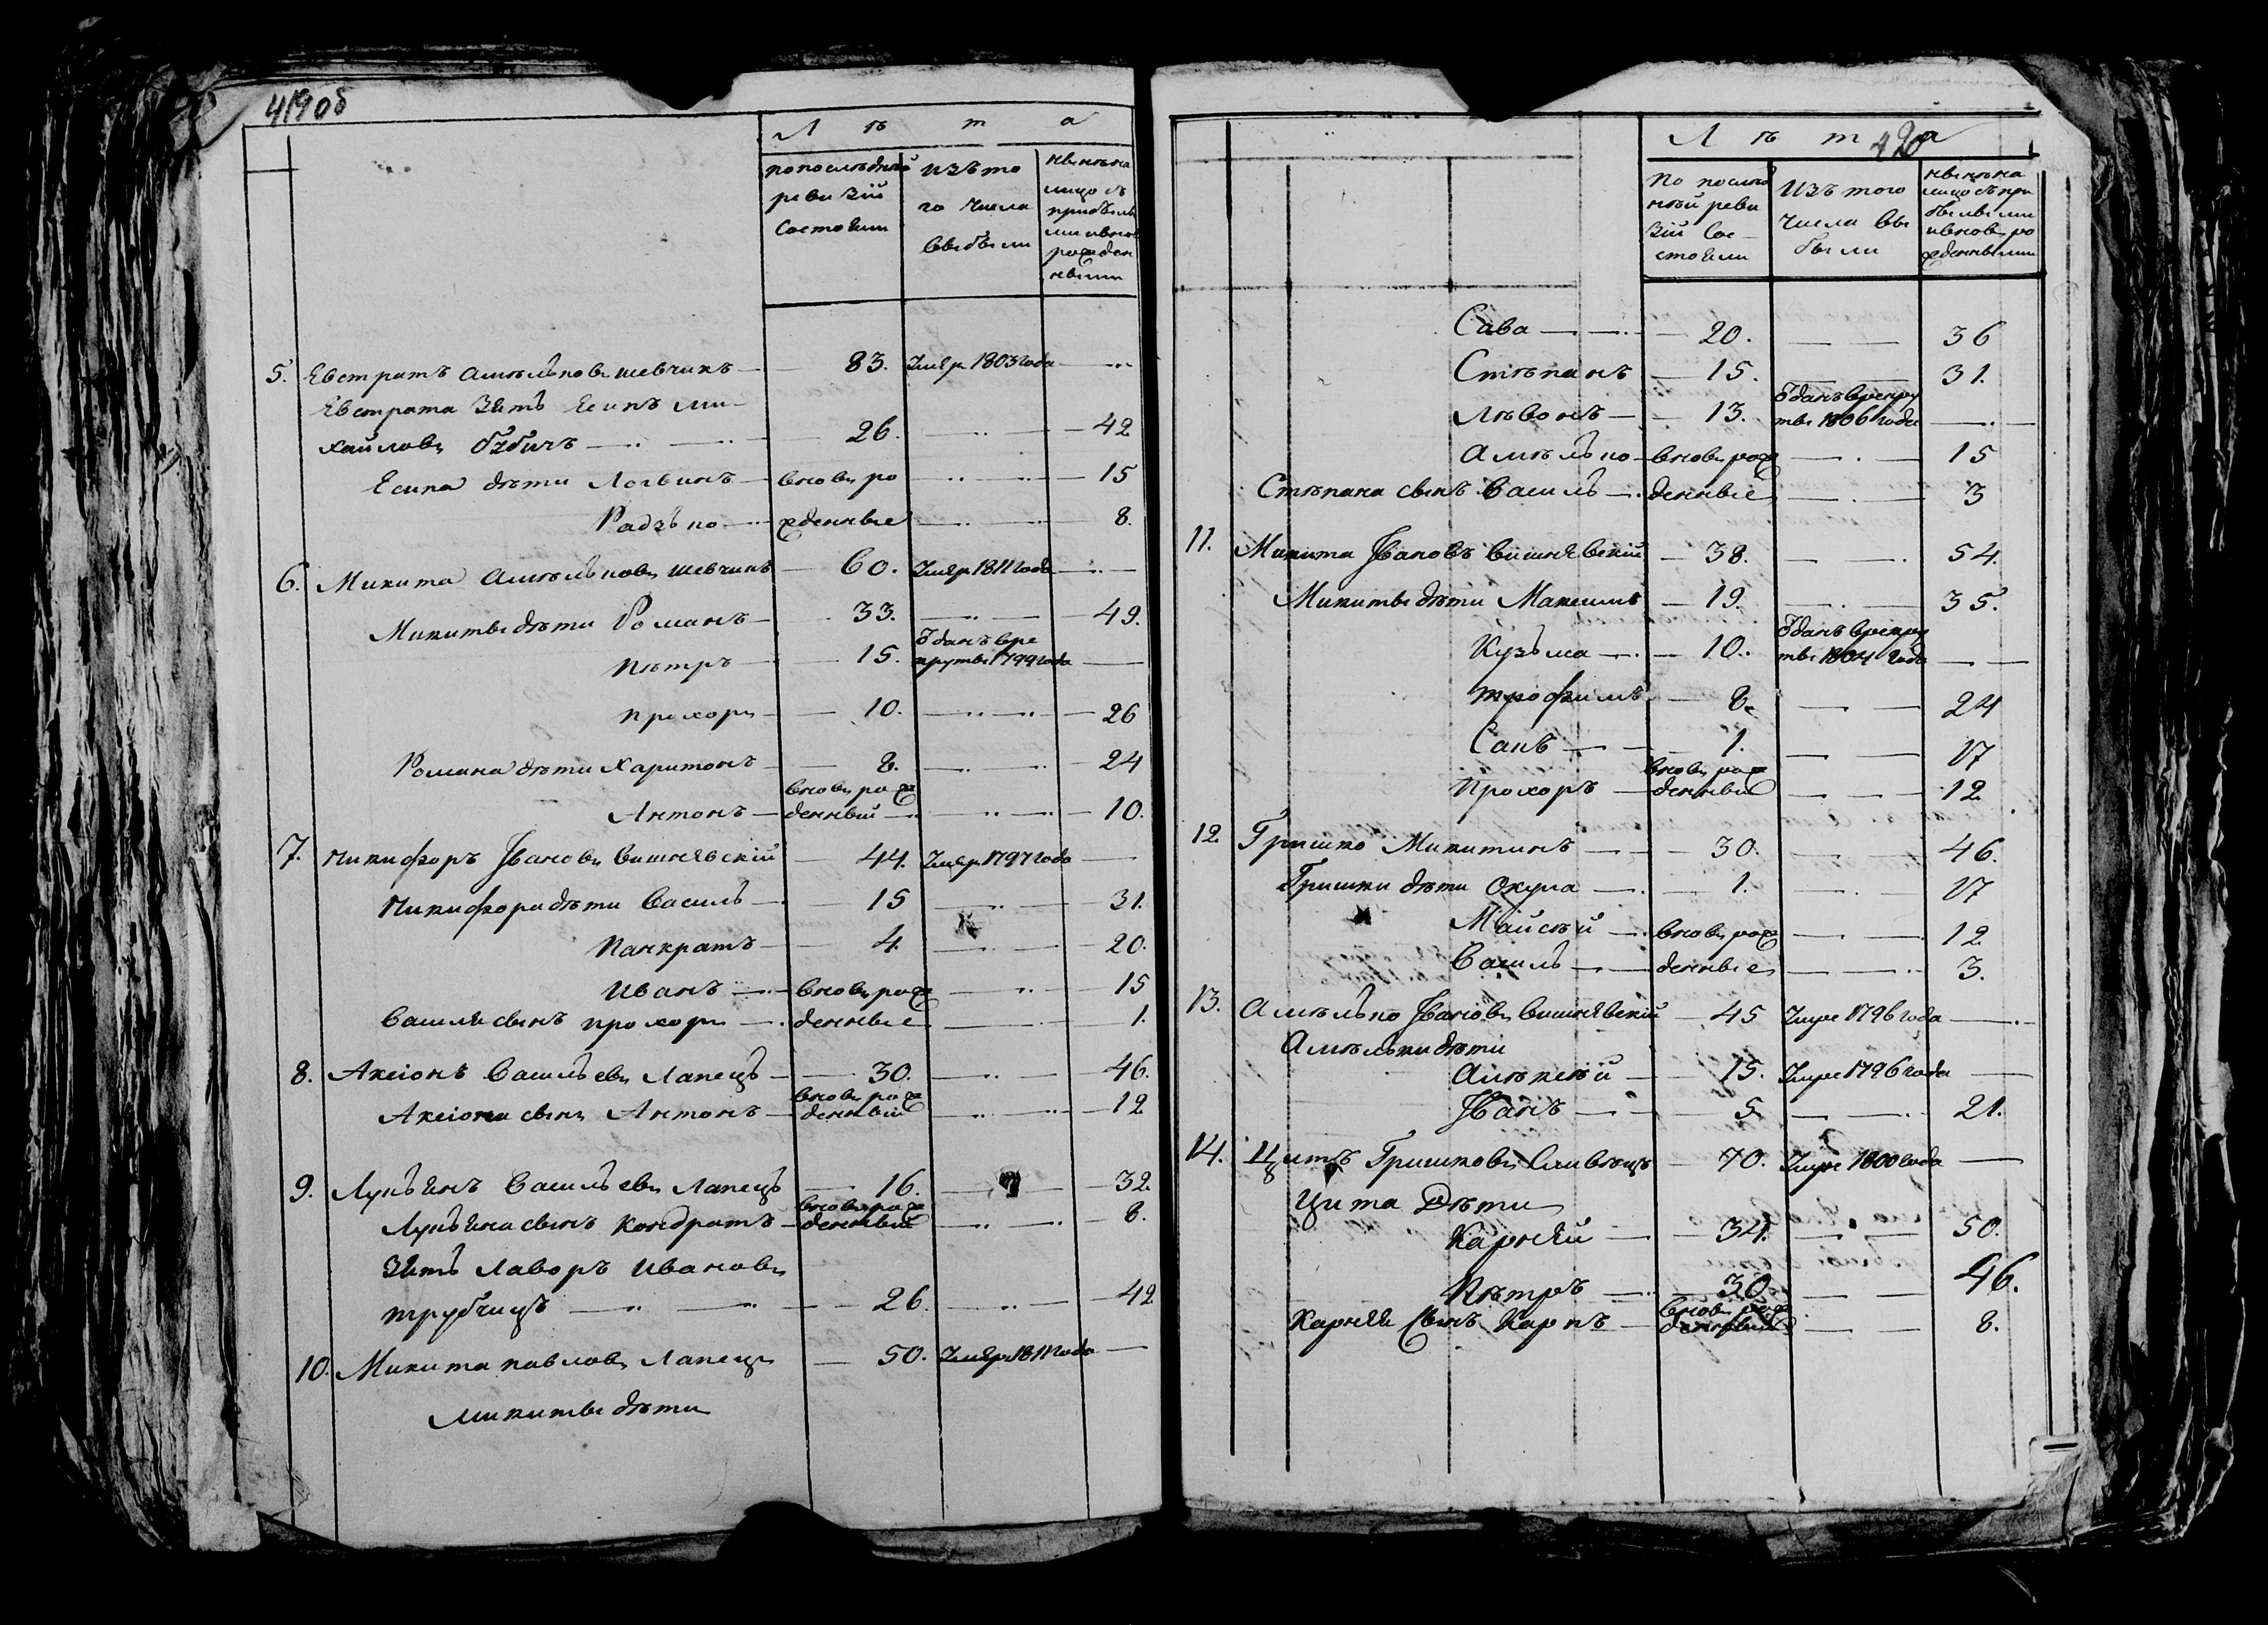 419об
Лѣта
по послѣдней ревизіи состояли
изъ того числа выбыли
нынѣ на лицо съ прибылыми и вновь рожденными
5. Евстратъ Амѣльновъ шевчикъ — 83. Умеръ 1803 года —
Евстрата Зять Есипъ Ми-
хайловъ — 26. — 42
Есипа дѣти Логвинъ — вновь ро — 15
Радько — жденные — 8.
6. Микита Амѣльковъ шевчикъ — 60. Умеръ 1811 года —
Микиты дѣти Романъ — 33. — 49.
Пѣтръ — 15. Ѿданъ в ре круты 1799 года —
прохоръ — 10. — 26
Романа дѣти Харитонъ — 8. — 24
Антонъ — вновь рож денный — 10.
7. Никифоръ Ивановъ вишнявскій — 44. Умеръ 1797 года —
Никифора дѣти Василь — 15 — 31.
Панкратъ — 4. — 20.
Иванъ — вновь рож — 15
Василя сынъ прохоръ — денные — 1.
8. Аксіонъ Васильевъ Лапецъ — 30. — 46.
Аксіона сынъ Антонъ — вновь рож денный — 12
9. Лукьянъ Васильевъ Лапецъ — 16. — 32.
Лукьяна сынъ Кондратъ — вновь рож денный — 8.
Зять Лаворъ Ивановъ
трубчицъ — 26. — 42
10. Микита павловъ Лапецъ — 50. Умеръ 1811 года —
микиты дѣти
420
Лѣта
По послѣдней ревизіи состояли
Изъ того числа выбыли
нынѣ на лицо съ прибылыми и вновь рожденными
Сава — 20. — 36
Стѣпанъ — 15. — 31.
Лѣвонъ — 13. Ѿданъ в рекруты 1806 года —
Амѣлько — вновь рож — 15
Стѣпана сынъ Василь — денные — 3
11. Микита Ивановъ вишнявскій — 38. — 54.
Микиты дѣти Максимъ — 19. — 35.
Кузьма — 10. Ѿданъ в рекруты 1804 года —
трофимъ — 8. — 24
Сакъ — 1. — 17
Прохоръ — вновь рож денный — 12
12. Гришко Микитинъ — 30. — 46.
Гришки дѣти Окула — 1. — 17
Майсѣй — вновь рож — 12
Василь — денные — 3.
13. Амѣлько Ивановъ вишнявскій — 45 Умре 1796 года —
Амѣльки дѣти
Алѣксѣй — 15. Умре 1796 года —
Иванъ — 5. — 21.
14. Цитъ Гришковъ — 70. Умре 1800 года —
Цита Дѣти
Карнѣй — 34. — 50.
Пѣтръ — 30. — 46.
Карнѣя Сынъ Карпъ — вновь рож денный — 8.